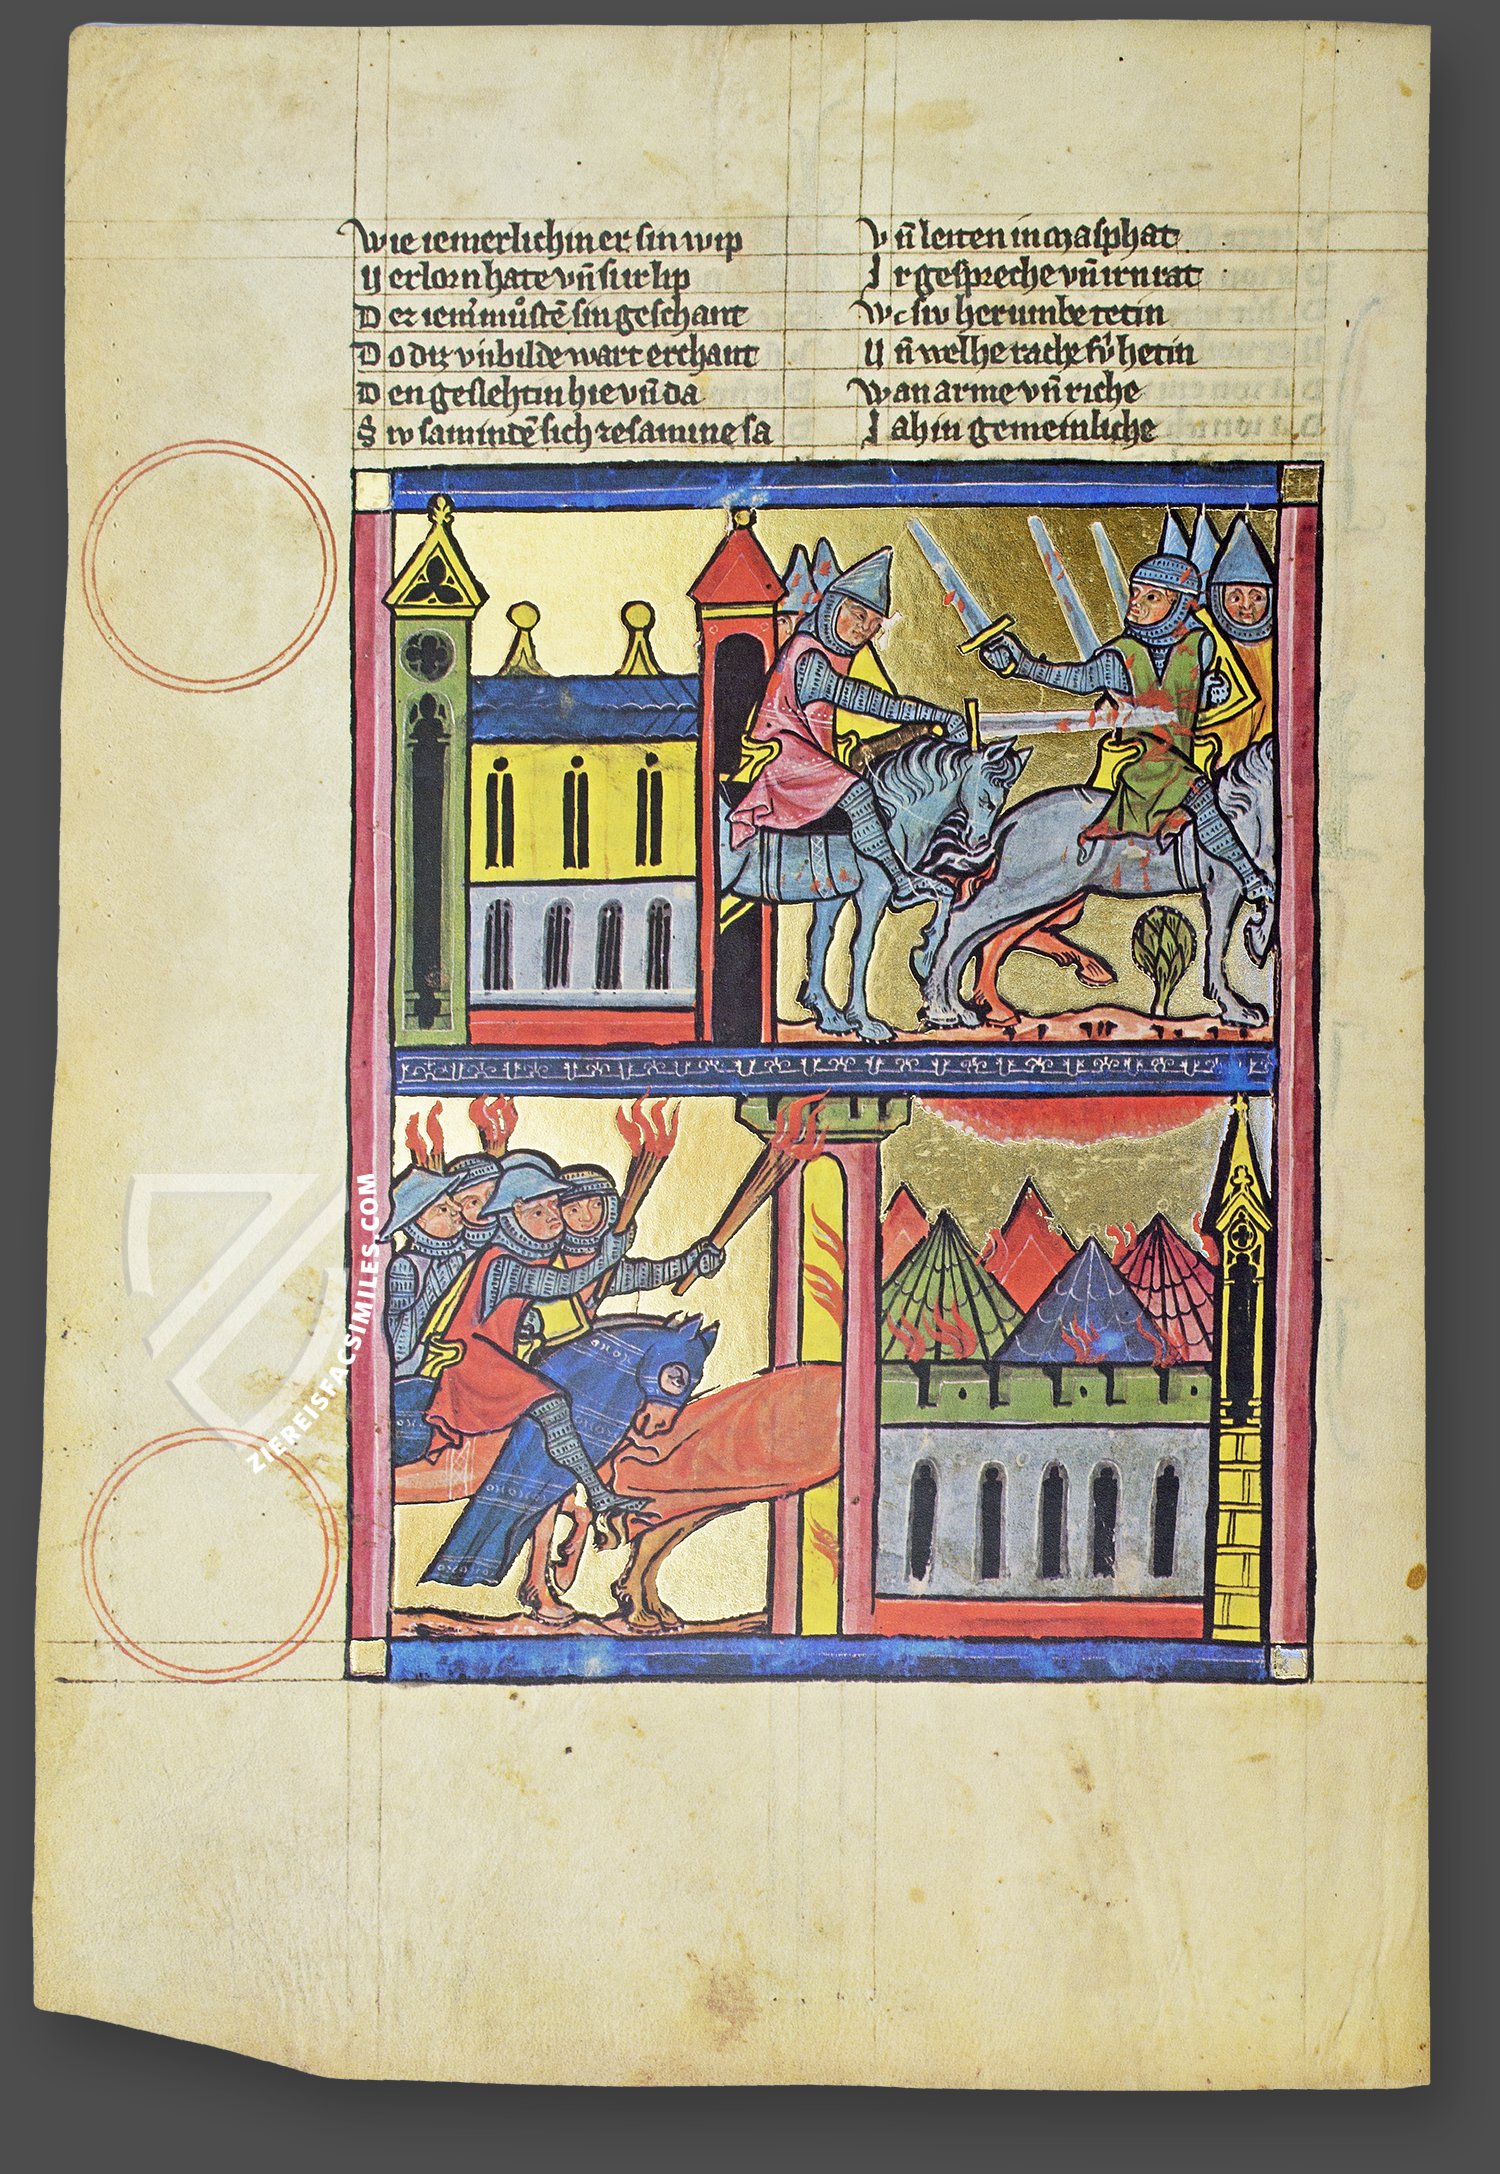 Wie iemerlichin er sin wip
Ƿerlorn hate vn̄ sur lip
Dez iem̄ muͦstē sin geschant
Do diz vnbilde wart erchant
Den geslehtin hie vn̄ da
Siv samintē sich zesamine sa
Vn̄ leiten in Masphat
Ir gespreche vn̄ irn rat
Wc siv her umbe tetin
Un̄ welhe rache sv̂ hetin
Wan arme vn̄ riche
Iahin gemeinliche
ZIEREISFACSIMILES.COM